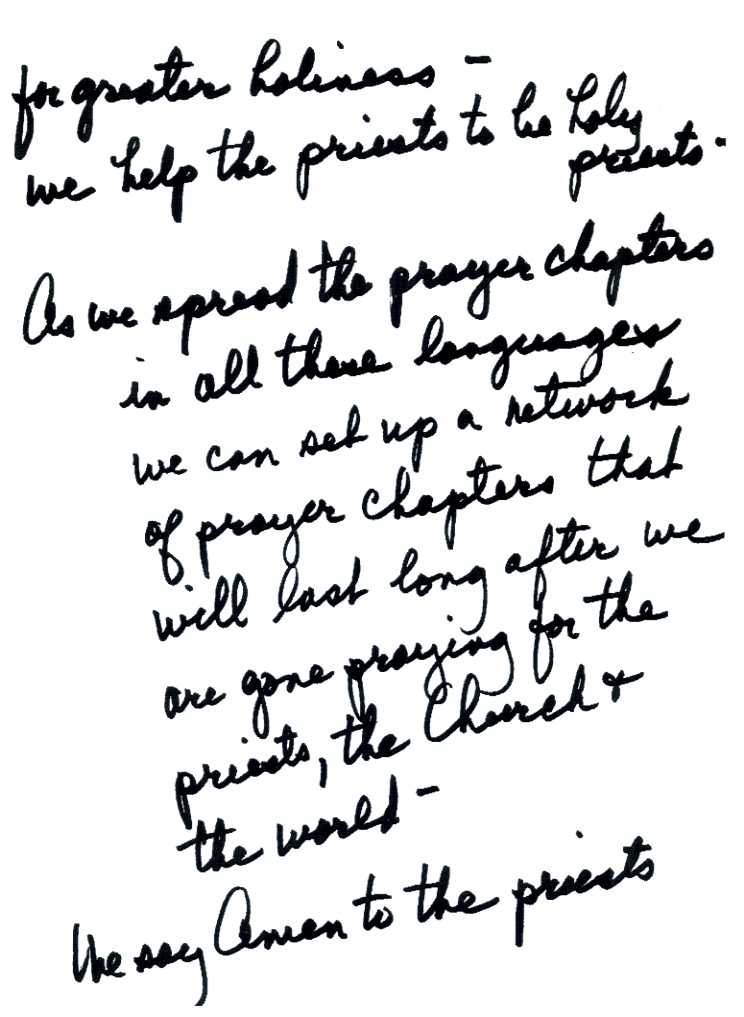 for greater holiness –
we help the priests to be holy
priests.
As we spread the prayer chapters
in all these languages
we can set up a network
of prayer chapters that
will last long after we
are gone praying for the
priests, the Church +
the world –
We say Amen to the priests